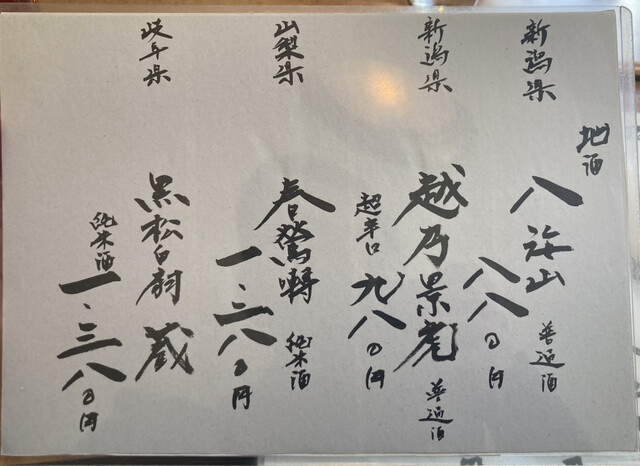 地酒
新潟県
八海山 普通酒
八八〇円
新潟県
越乃景虎 普通酒
超辛口 九八〇円
山梨県
春鶯囀 純米酒
一、三八〇円
岐阜県
黒松白扇 蔵
純米酒 一、三八〇円